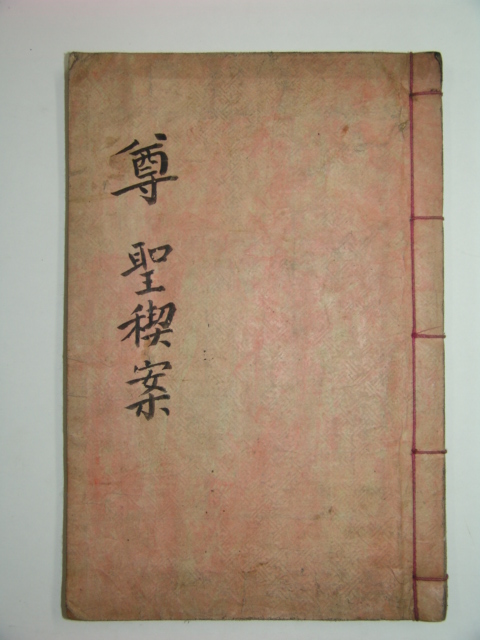 尊聖稧案